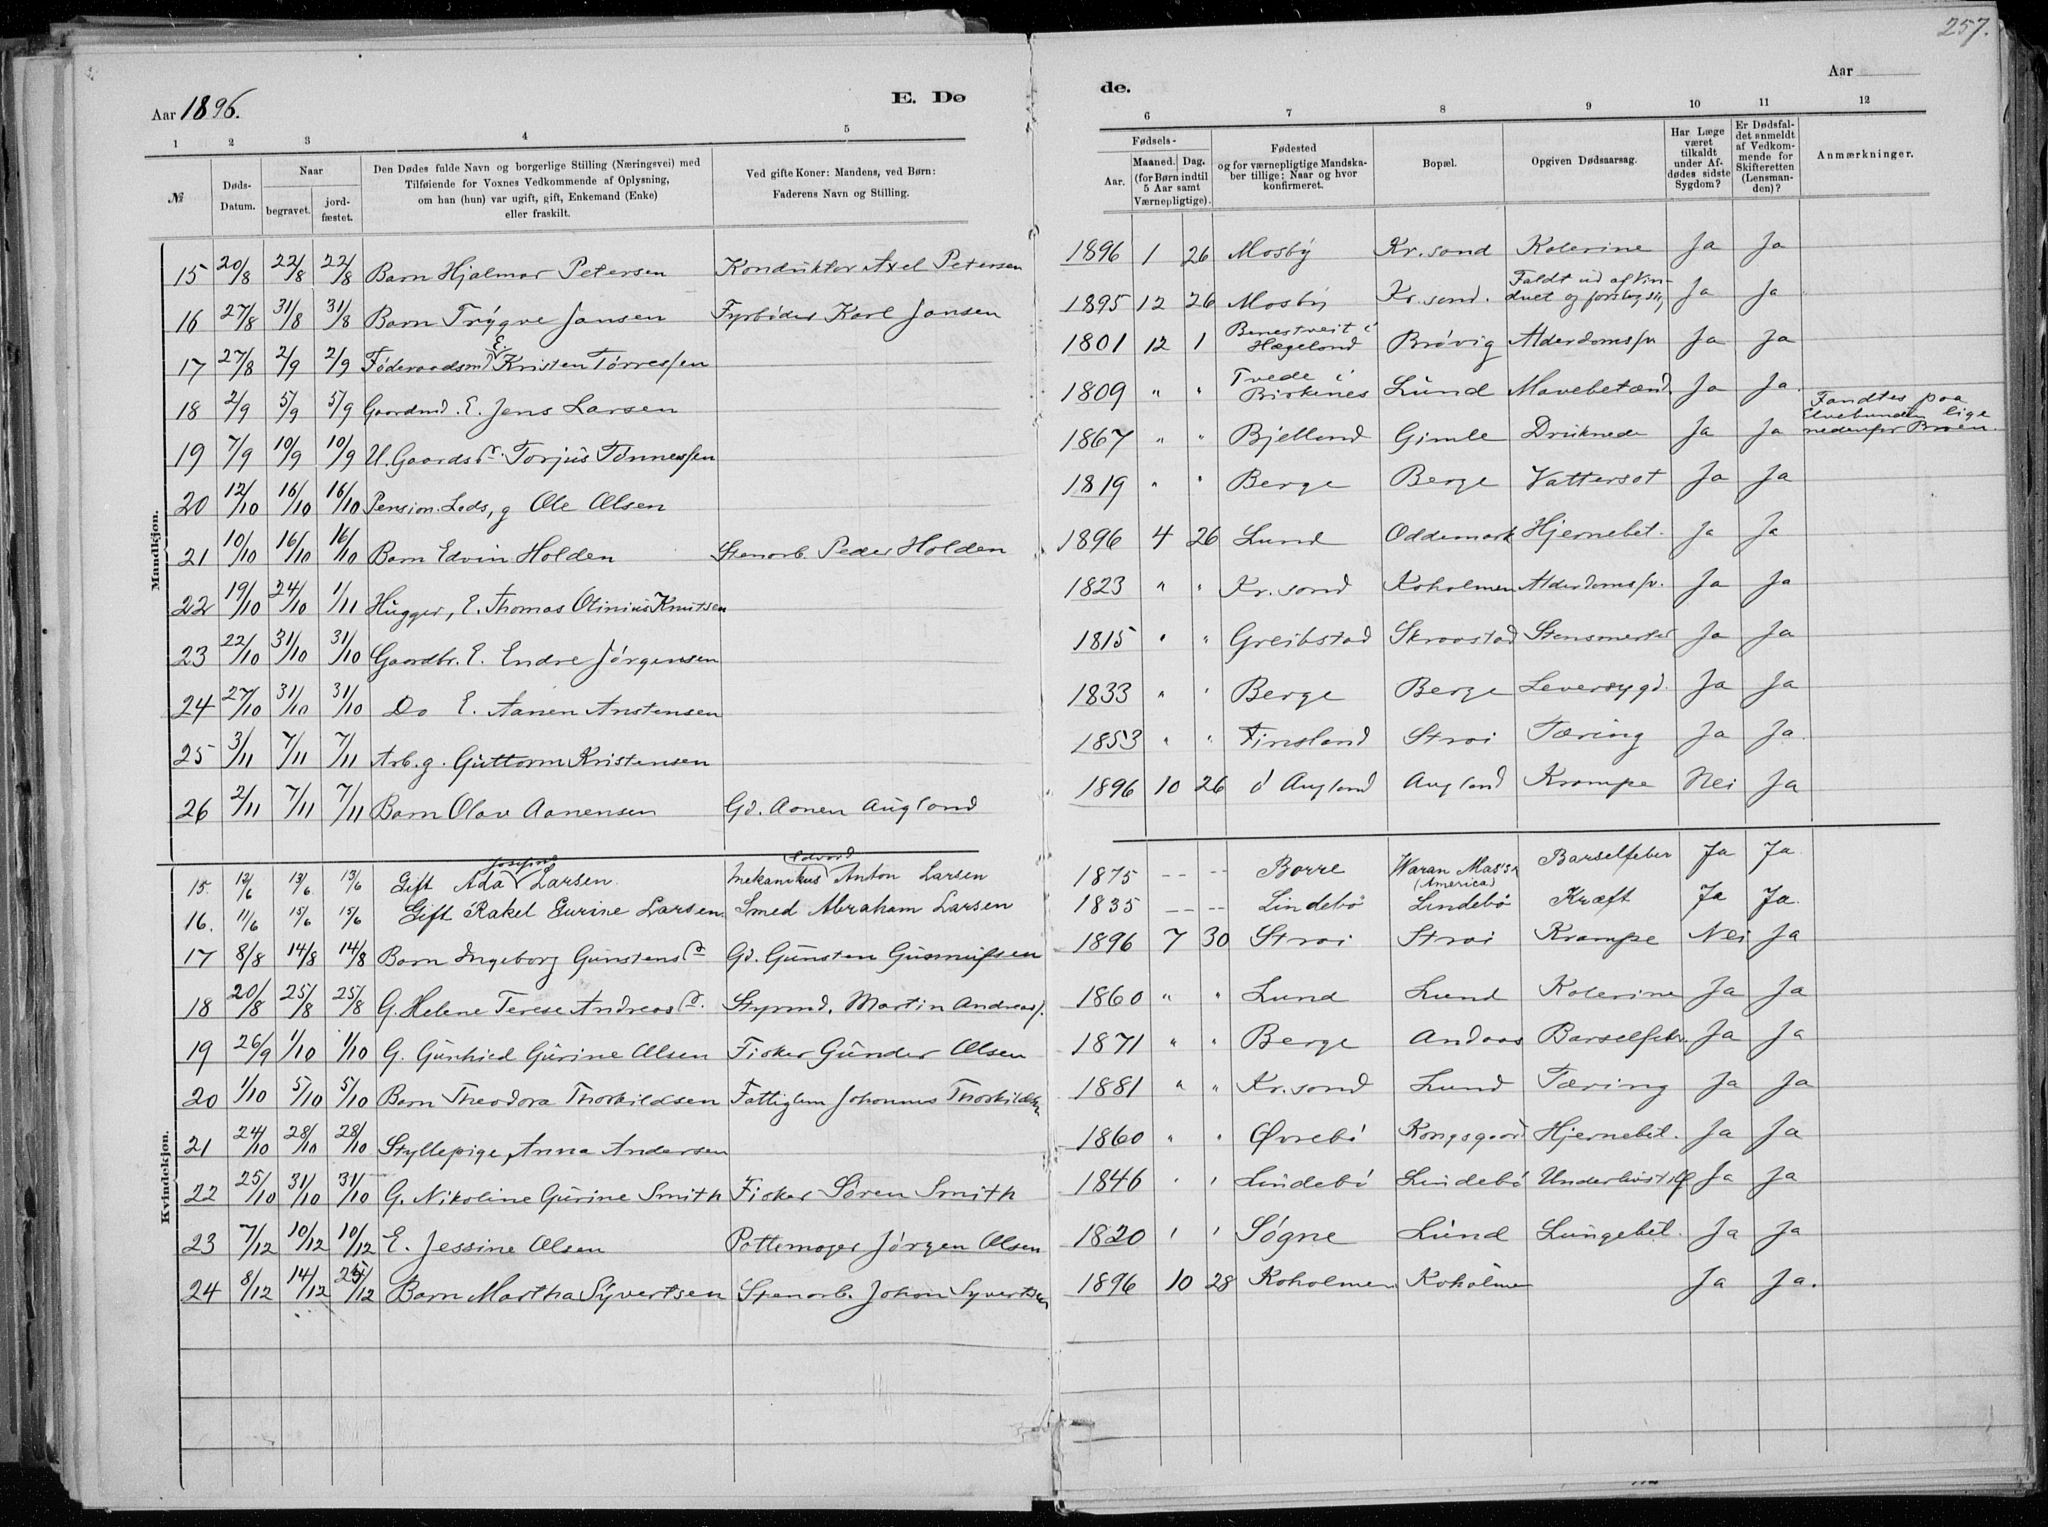 257.
Aar 1896. E. Dø de. Aar
1 2 3 4 5 6 7 8 9 10 11 12
№ Døds-Datum. Naar begravet. jordfæstet. Den Dødes fulde Navn og borgerlige Stilling (Næringsvei) med Tilføiende for Voxnes Vedkommende af Oplysning, om han (hun) var ugift, gift, Enkemand (Enke) eller fraskilt. Ved gifte Koner: Mandens, ved Børn: Faderens Navn og Stilling. Fødsels- Aar. Maaned. Dag. (for Børn indtil 5 Aar samt Værnepligtige). Fødested og for værnepligtige Mandskaber tillige: Naar og hvor konfirmeret. Bopæl. Opgiven Dødsaarsag. Har Læge været tilkaldt under Afdødes sidste Sygdom? Er Dødsfaldet anmeldt af Vedkommende for Skifteretten (Lensmanden)? Anmærkninger.
Mandkjøn.
15 20/8 22/8 22/8 Barn Hjalmar Petersen Konduktør Axel Petersen 1896 1 26 Mosby Kr.sand Kolerine Ja Ja
16 27/8 31/8 31/8 Barn Trygve Jansen Fyrbøder Karl Jansen 1895 12 26 Mosby Kr.sand. Faldt ud af Vinduet og forslog sig Ja Ja
17 27/8 2/9 2/9 Føderaadsmd E. Kristen Tørressen 1801 12 1 Benestveit i Hægeland Brøvig Alderdomssv Ja Ja
18 2/9 5/9 5/9 Gaardmd. E. Jens Larsen 1809 " " Tvede i Birkenes Lund Mavebetænd. Ja Ja.
19 7/9 10/9 10/9 U. Gaards Torjus Tønnessen 1867 " " Bjelland Gimle Druknede Ja Ja Fandtes paa Elvebunden lige nedenfor Broen.
20 12/10 16/10 16/10 Pension. Lods, g Ole Olsen 1819 " " Berge Berge Vattersot Ja Ja
21 10/10 16/10 16/10 Barn Edvin Holden Stenarb. Peder Holden 1896 4 26 Lund Oddemark Hjernebet. Ja Ja
22 19/10 24/10 1/11 Hugger, E. Thomas Olinius Knutsen 1823 " " Kr.sand Koholmen Alderdomssv. Ja Ja
23 22/10 31/10 31/10 Gaardbr. E. Endre Jørgensen 1815 " " Greibstad Skraastad Stensmerter Ja Ja
24 27/10 31/10 31/10 Do E. Aanen Anstensen 1833 " " Berge Berge Leversygd. Ja Ja
25 3/11 7/11 7/11 Arb. g. Guttorm Kristensen 1853 " " Finsland Strai Tæring Ja Ja.
26 2/11 7/11 7/11 Barn Olav Aanensen Gd. Aanen Augland 1896 10 26 Augland Augland Krampe Nei Ja
Kvindekjøn.
15. 12/6 13/6 13/6 Gift Ada Josefine Larsen. Mekanikus Edvard Anton Larsen 1875 -- -- Borre Waran Mass. (America) Barselfeber Ja Ja.
16. 11/6 15/6 15/6 Gift Rakel Gurine Larsen Smed Abraham Larsen 1835 -- -- Lindebø Lindebø Kræft Ja Ja.
17 8/8 14/8 14/8 Barn Ingeborg Gunstens Gd. Gunsten Gunnufsen 1896 7 30 Strai Strai Krampe Nei Ja
18 20/8 25/8 25/8 G. Helene Terese Andreas Styrmd. Martin Andreass. 1860 " " Lund Lund Kolerine Ja Ja
19 26/9 1/10 1/10 G. Gunhild Gurine Olsen Fisker Gunder Olsen 1871 " " Berge Andaas Barselfeber Ja Ja
20 1/10 5/10 5/10 Barn Theodora Thorkildsen Fattiglem Johannes Thorkildsen 1881 " " Kr.sand Lund Tæring Ja Ja
21 24/10 28/10 28/10 Syllepige, Anna Andersen 1860 " " Øvrebø Kongsgaard Hjernebet. Ja Ja
22 25/10 31/10 31/10 G. Nikoline Gurine Smith Fisker Søren Smith 1846 " " Lindebø Lindebø Ja Ja
23 7/12 10/12 10/12 E. Jessine Olsen Pottemager Jørgen Olsen 1820 " " Søgne Lund Lungebet. Ja Ja
24 8/12 14/12 25/12 Barn Martha Syvertsen Stenarb. Johan Syvertsen 1896 10 28 Koholmen Koholmen Ja Ja.